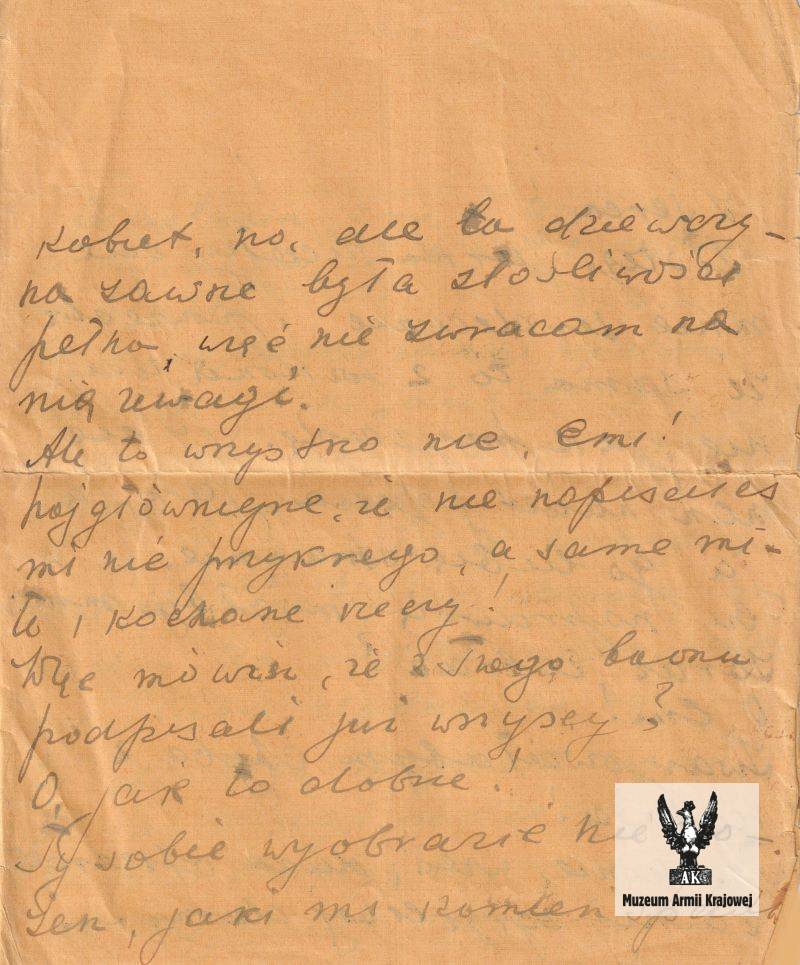 kobiet, no, ale ta dziewczy-
na zawsze była złośliwości
pełna, więc nie zwracam na
nią uwagi.
Ale to wszystko nic, Emi!
najgłówniejsze, że nie napisałeś
mi nic przykrego, a same mi-
łe i kochane rzeczy!
Więc mówisz, że z Twego baonu
podpisali już wszyscy?
O, jak to dobrze!
Ty sobie wyobrazić nie
żen, jaki mi kamień
AK
Muzeum Armii Krajowej